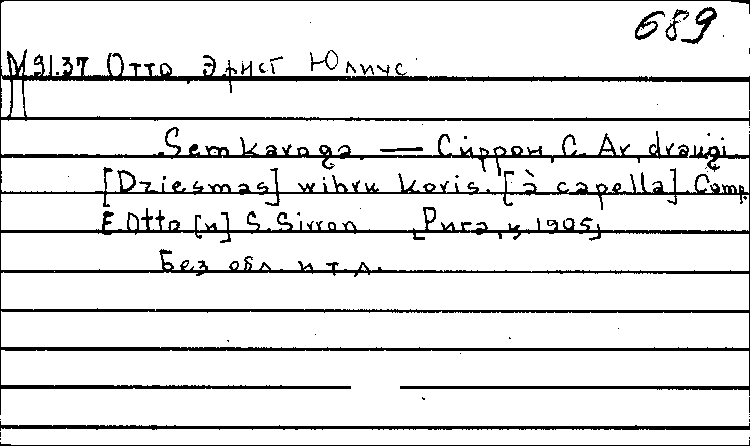 689
М 91.37 Отто, Эрнст Юлиус
Sem karoga. — Сиррон, С. Ar draugi.
[Dziesmas] wihru koris. [à capella]. Comp.
E. Otto [и] S. Sirron [Рига, ц. 1905]
Без обл. и т.л.